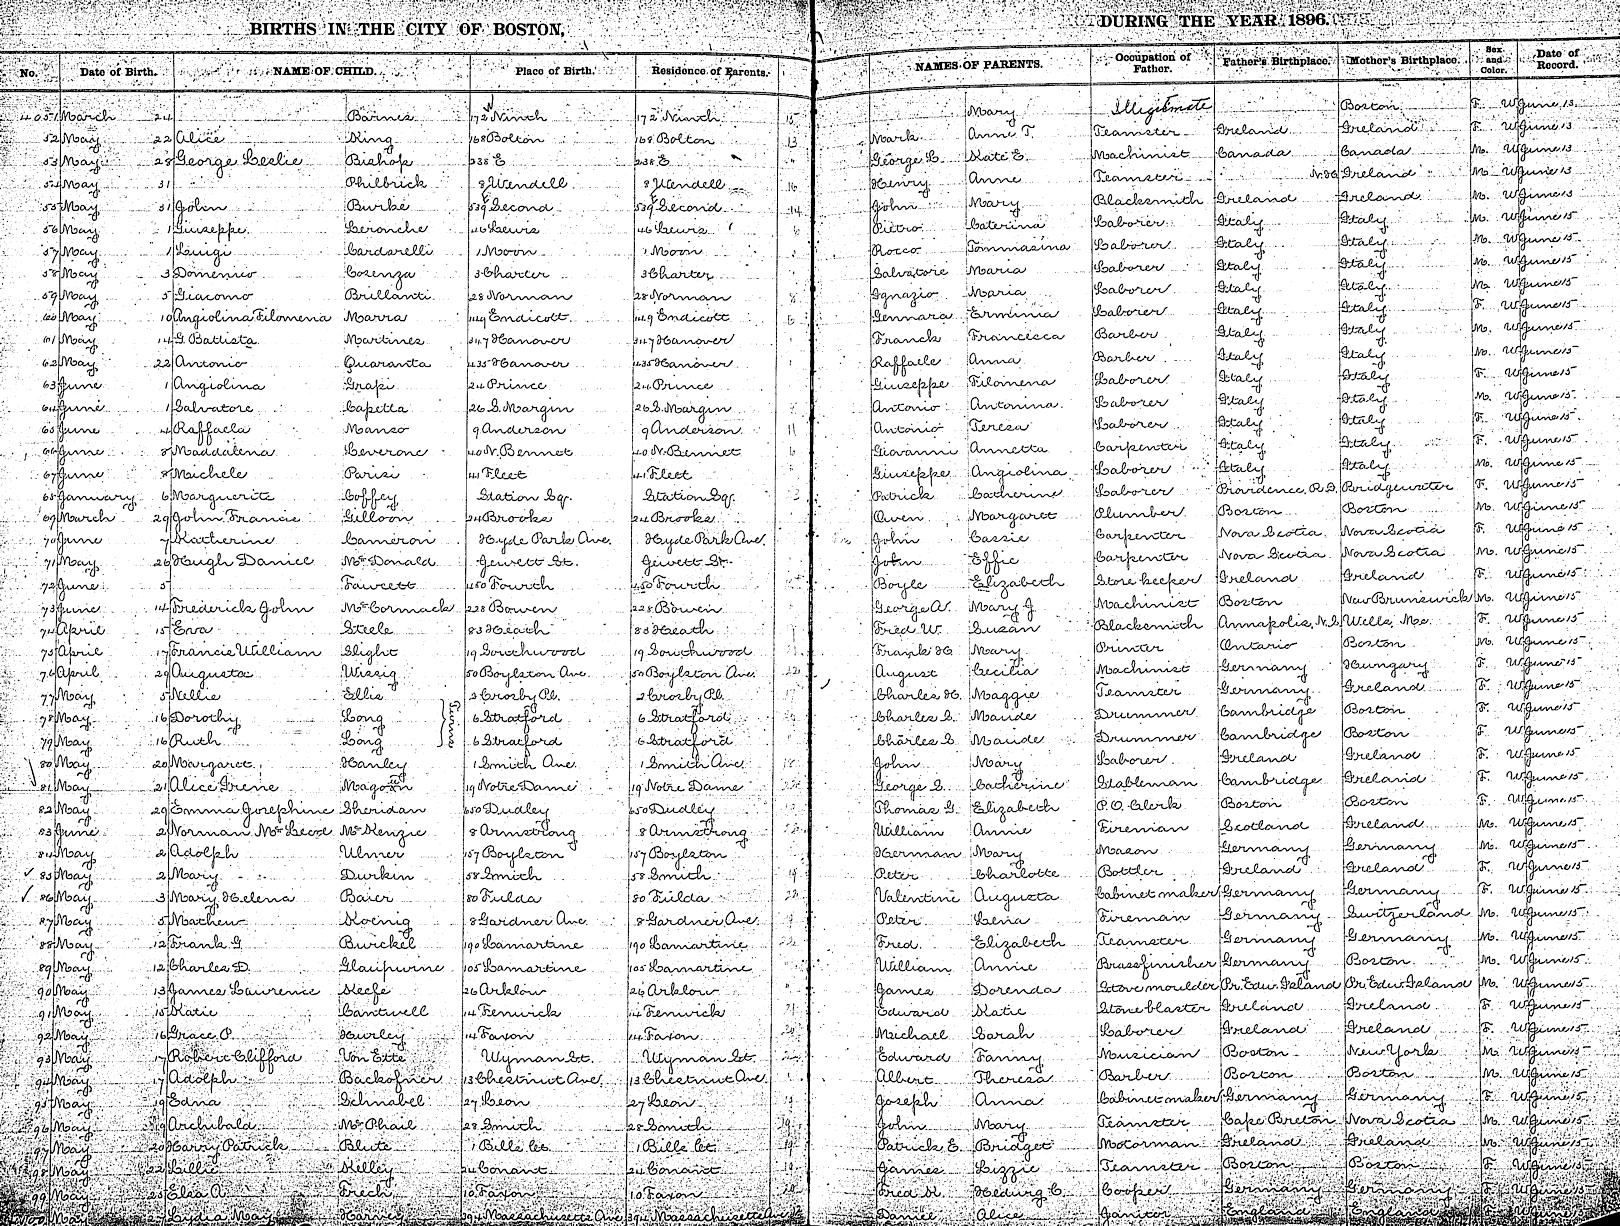 BIRTHS IN THE CITY OF BOSTON, DURING THE YEAR 1896.
No. Date of Birth. NAME OF CHILD. Place of Birth. Residence of Parents. NAMES OF PARENTS. Occupation of Father. Father's Birthplace. Mother's Birthplace. Sex and Color. Date of Record.
4051 March 24 Barnes 172 W Ninth 172 Ninth 15 Mary Illigitimate Boston F. W June 13
52 May 22 Alice King 168 Bolton 168 Bolton 13 Mark Anne T. Teamster Ireland Ireland F. W June 13
53 May 28 George Leslie Bishop 238 E 238 E George L. Kate E. Machinist Canada Canada M. W June 13
54 May 31 Philbrick 8 Wendell 8 Wendell 16 Henry Anne Teamster N.H. Ireland M. W June 13
55 May 31 John Burke 539 Second 539 Second 14 John Mary Blacksmith Ireland Ireland M. W June 13
56 May 1 Giuseppe Leronche 46 Lewis 46 Lewis 6 Pietro Caterina Laborer Italy Italy M. W June 15
57 May 1 Luigi Cardarelli 1 Moon 1 Moon Rocco Tommasina Laborer Italy Italy M. W June 15
58 May 3 Domenico Cosenza 3 Charter 3 Charter Salvatore Maria Laborer Italy Italy M. W June 15
59 May 5 Giacomo Brillanti 28 Norman 28 Norman 8 Ignazio Maria Laborer Italy Italy M. W June 15
60 May 10 Angiolina Filomena Marra 149 Endicott 149 Endicott 6 Gennara Erminia Laborer Italy Italy F. W June 15
61 May 14 G. Battista Martines 347 Hanover 347 Hanover Franck Francesca Barber Italy Italy M. W June 15
62 May 22 Antonio Quaranta 435 Hanover 435 Hanover Raffaele Anna Barber Italy Italy M. W June 15
63 June 1 Angiolina Grapi 24 Prince 24 Prince Giuseppe Filomena Laborer Italy Italy F. W June 15
64 June 1 Salvatore Capitta 26 S. Margin 26 S. Margin Antonio Antonina Laborer Italy Italy M. W June 15
65 June 4 Raffaela Manso 9 Anderson 9 Anderson 11 Antonio Teresa Laborer Italy Italy F. W June 15
66 June 8 Maddalena Leverone 40 N. Bennet 40 N. Bennet 6 Giovanni Annetta Carpenter Italy Italy F. W June 15
67 June 8 Michele Parisi 41 Fleet 41 Fleet Giuseppe Angiolina Laborer Italy Italy M. W June 15
68 January 6 Marguerite Coffey Station Sq. Station Sq. Patrick Catherine Laborer Providence, R.I. Bridgewater F. W June 15
69 March 29 John Francis Gilloon 24 Brooks 24 Brooks Owen Margaret Plumber Boston Boston M. W June 15
70 June 7 Katherine Cameron Hyde Park Ave. Hyde Park Ave. John Cassie Carpenter Nova Scotia Nova Scotia F. W June 15
71 May 26 Hugh Daniel McDonald Jewett St. Jewett St. John Effie Carpenter Nova Scotia Nova Scotia M. W June 15
72 June 5 Fawcett 450 Fourth 450 Fourth Boyle Elizabeth Store keeper Ireland Ireland F. W June 15
73 June 14 Frederick John McCormack 228 Bowen 228 Bowen George A. Mary J. Machinist Boston New Brunswick M. W June 15
74 April 15 Eva Steele 83 Heath 83 Heath Fred W. Susan Blacksmith Annapolis, N.S. Wells, Me. F. W June 15
75 April 17 Francis William Slight 19 Southwood 19 Southwood Frank H. Mary Printer Ontario Boston M. W June 15
76 April 29 Augusta Wissig 50 Boylston Ave. 50 Boylston Ave. August Cecilia Machinist Germany Hungary F. W June 15
77 May 5 Nellie Ellis 2 Crosby Pl. 2 Crosby Pl. Charles H. Maggie Teamster Germany Ireland F. W June 15
78 May 16 Dorothy Long Twins 6 Stratford 6 Stratford Charles S. Maude Drummer Cambridge Boston F. W June 15
79 May 16 Ruth Long 6 Stratford 6 Stratford Charles S. Maude Drummer Cambridge Boston F. W June 15
80 May 20 Margaret Hanley 1 Smith Ave. 1 Smith Ave. John Mary Laborer Ireland Ireland F. W June 15
81 May 21 Alice Irene Magoun 19 Notre Dame 19 Notre Dame George S. Catherine Stableman Cambridge Ireland F. W June 15
82 May 29 Emma Josephine Sheridan 650 Dudley 650 Dudley Thomas G. Elizabeth P.O. Clerk Boston Boston F. W June 15
83 June 2 Norman McLeod McKenzie 8 Armstrong 8 Armstrong William Annie Fireman Scotland Ireland M. W June 15
84 May 2 Adolph Ulmer 157 Boylston 157 Boylston Herman Mary Mason Germany Germany M. W June 15
85 May 2 Mary Durkin 58 Smith 58 Smith 14 Peter Charlotte Bottler Ireland Ireland F. W June 15
86 May 3 Mary Helena Baier 80 Fulda 80 Fulda 22 Valentine Augusta Cabinet maker Germany Germany F. W June 15
87 May 5 Mathew Koenig 8 Gardner Ave. 8 Gardner Ave. Peter Lena Fireman Germany Switzerland M. W June 15
88 May 12 Frank G. Burckel 190 Lamartine 190 Lamartine Fred Elizabeth Teamster Germany Germany M. W June 15
89 May 12 Charles D. Glaipvine 105 Lamartine 105 Lamartine William Annie Brassfinisher Germany Boston M. W June 15
90 May 13 James Lawrence Keefe 26 Arklow 26 Arklow James Dorenda Stove moulder Pr. Edw. Island Pr. Edw. Island M. W June 15
91 May 15 Katie Cantwell 14 Fenwick 14 Fenwick 21 Edward Katie Stone blaster Ireland Ireland F. W June 15
92 May 16 Grace P. Hurley 14 Faxon 14 Faxon Michael Sarah Laborer Ireland Ireland F. W June 15
93 May 17 Robert Clifford Von Ette Wyman St. Wyman St. Edward Fanny Musician Boston New York M. W June 15
94 May 17 Adolph Backofner 13 Chestnut Ave. 13 Chestnut Ave. Albert Theresa Barber Boston Boston M. W June 15
95 May 19 Edna Schnabel 27 Leon 27 Leon Joseph Anna Cabinet maker Germany Germany F. W June 15
96 May 19 Archibald McPhail 28 Smith 28 Smith 19 John Mary Teamster Cape Breton Nova Scotia M. W June 15
97 May 20 Harry Patrick Blute 1 Bills Ct. 1 Bills Ct. 19 Patrick E. Bridget Motorman Ireland Ireland M. W June 15
98 May 22 Lillie Kelley 24 Conant 24 Conant James Lizzie Teamster Boston Boston F. W June 15
99 May 25 Elsa A. Frech 10 Faxon 10 Faxon Fred K. Hedwig C. Cooper Germany Germany F. W June 15
May 27 Lydia May Harvey 394 Massachusetts Ave. 394 Massachusetts Ave. Daniel Alice Janitor England England F. W June 15